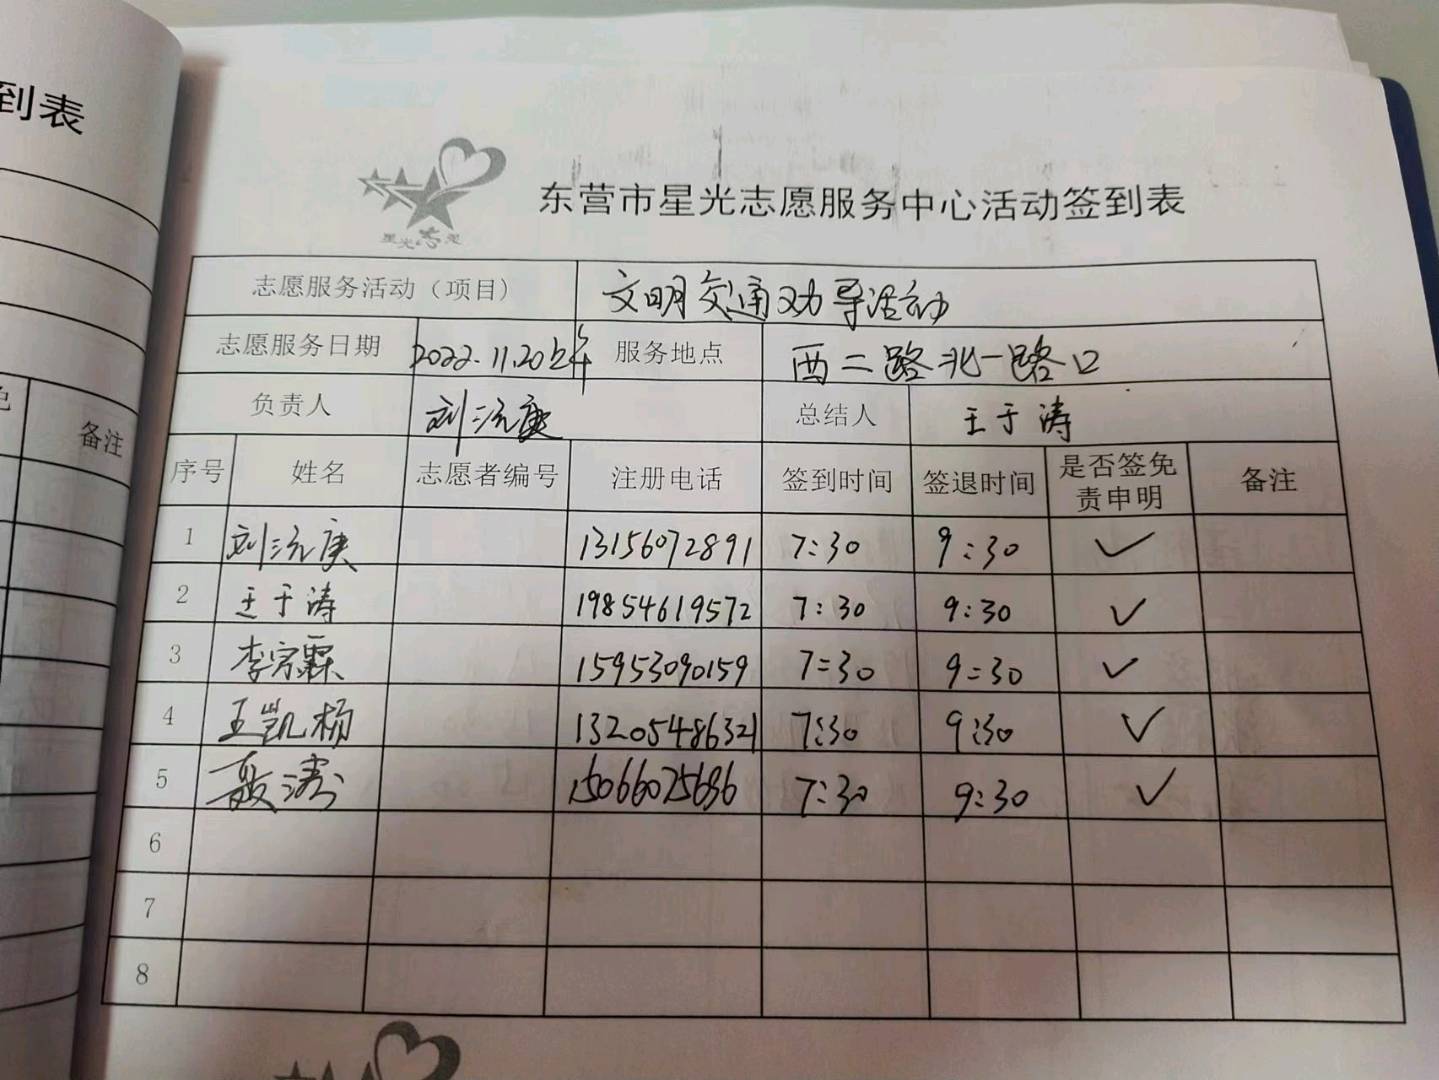 到表
备注
星光志愿
东营市星光志愿服务中心活动签到表
志愿服务活动（项目） 文明交通劝导活动
志愿服务日期 2022.11.20上午 服务地点 西二路北一路口
负责人 刘沅庚 总结人 王于涛
序号 姓名 志愿者编号 注册电话 签到时间 签退时间 是否签免责申明 备注
1 刘沅庚 13156072891 7:30 9:30 ✓
2 王于涛 19854619572 7:30 9:30 ✓
3 李宗霖 15953090159 7:30 9:30 ✓
4 王凯杨 13205486321 7:30 9:30 ✓
5 聂涛 15066075686 7:30 9:30 ✓
6
7
8